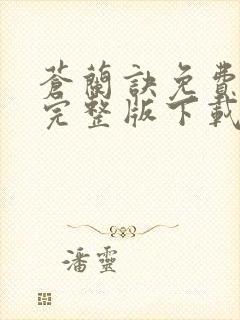 蒼蘭訣免費
完整版下載
潘靈